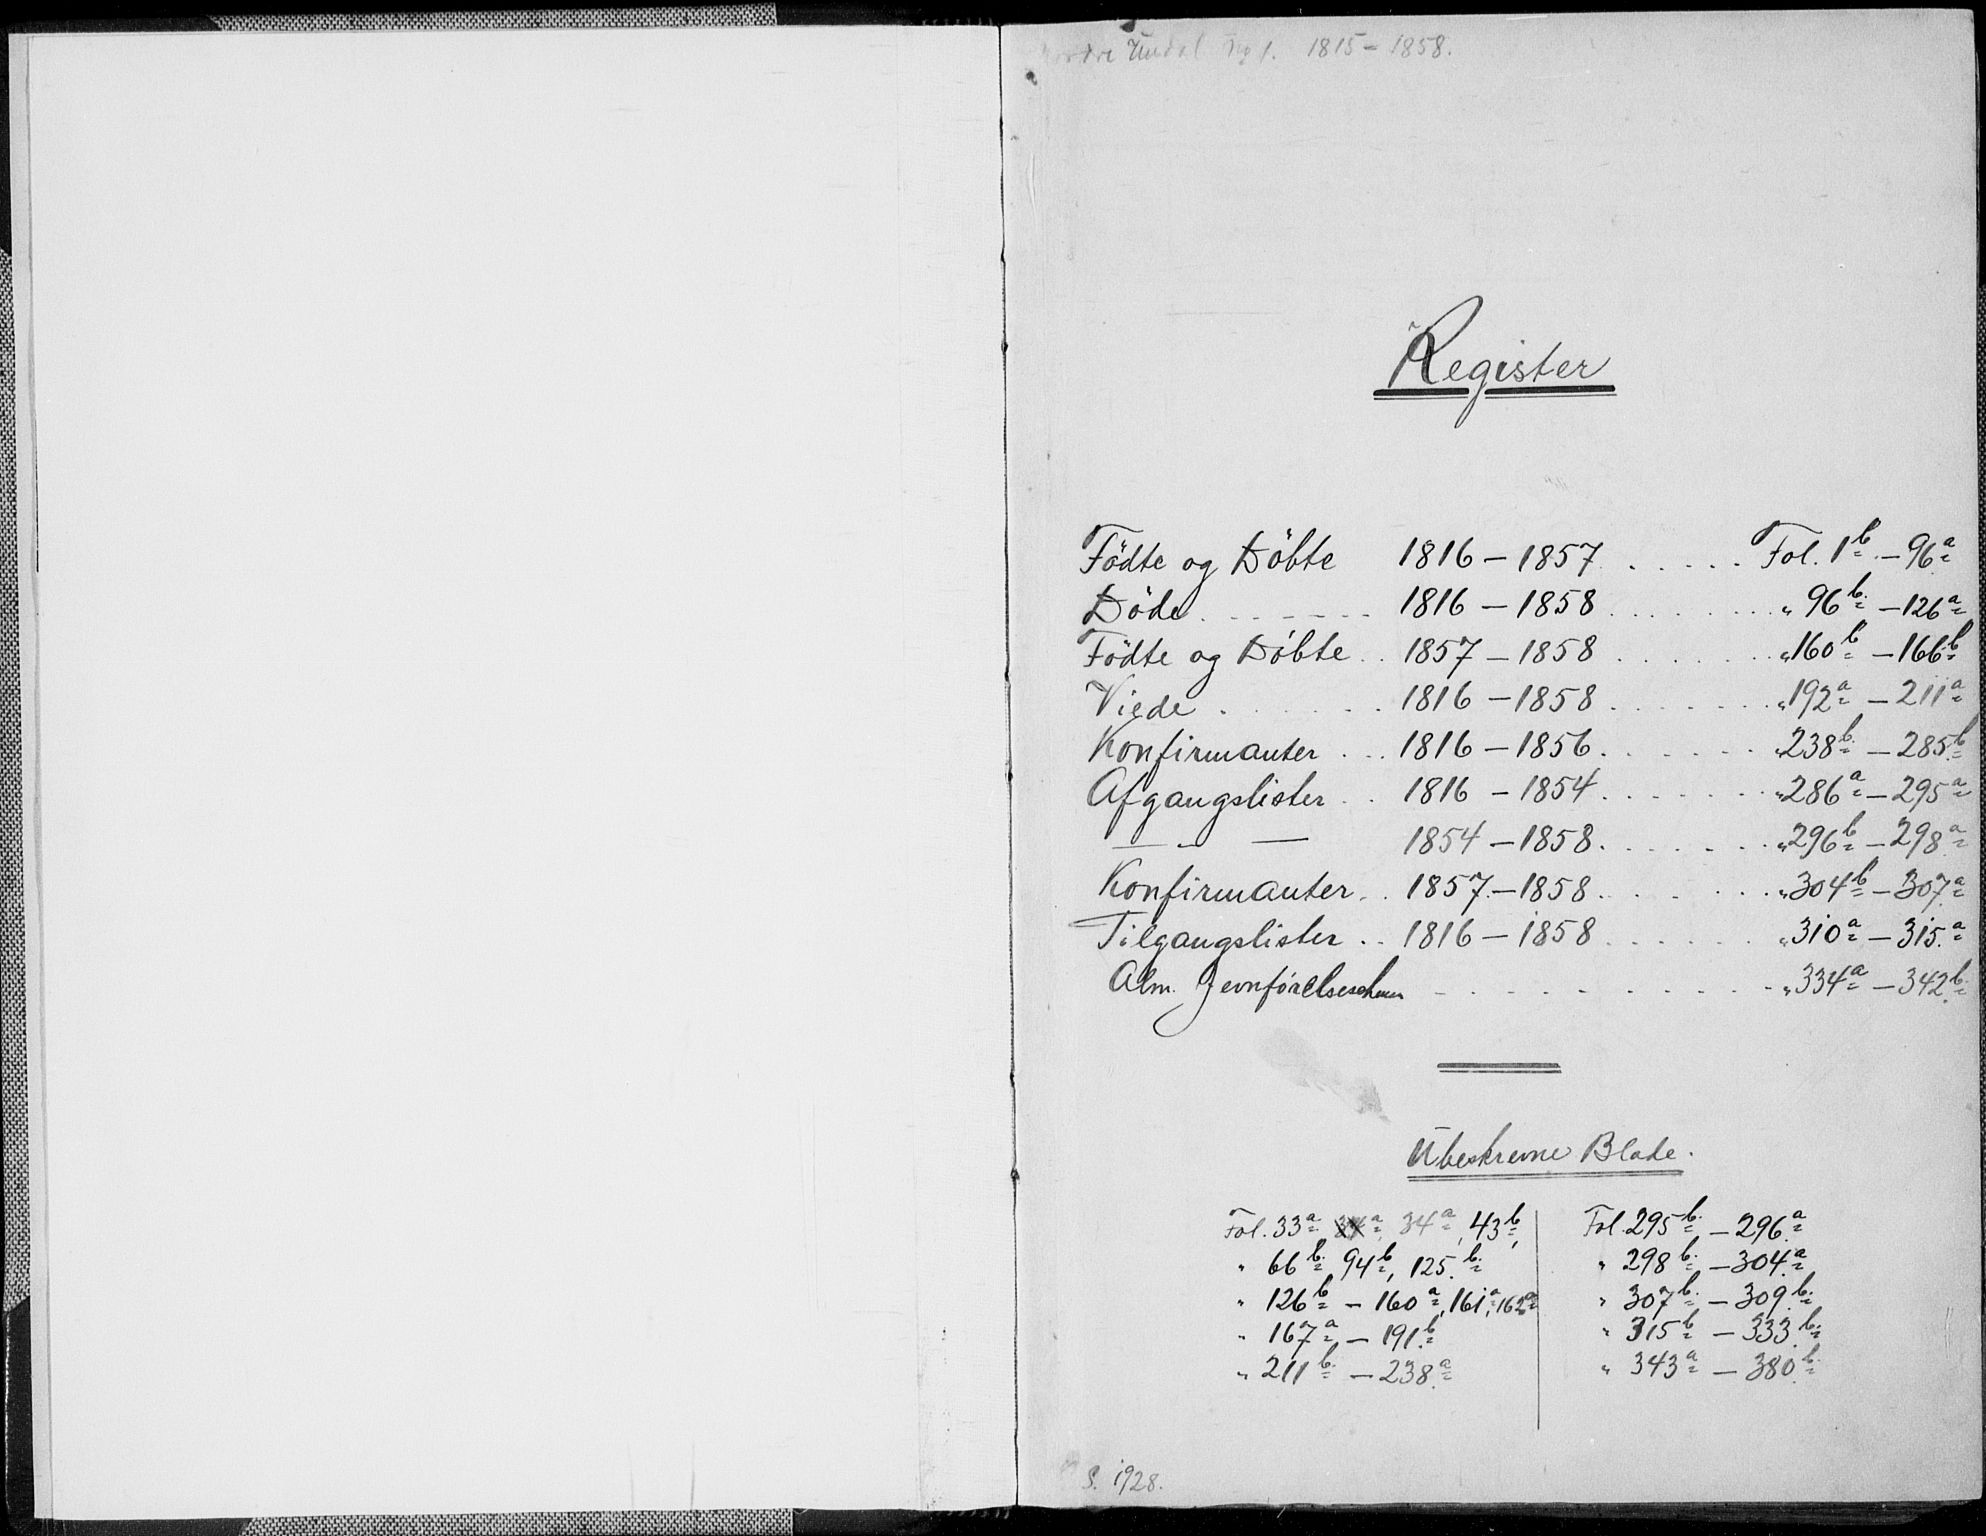 Undal 1815 – 1858.
Register
Födte og Döbte 1816 – 1857 . . . . . Fol. 1b – 96a
Döde . . . . . . 1816 – 1858 . . . . . . . „ 96b – 126a
Födte og Döbte . . 1857 – 1858 . . . . . . „ 160b – 166b
Viede . . . . . . 1816 – 1858 . . . . . . . „ 192a – 211a
Konfirmanter . . . 1816 – 1856 . . . . . . „ 238b – 285b
Afgangslister . . 1816 – 1854 . . . . . . . „ 286a – 295a
— „ — 1854 – 1858 . . . . . . . „ 296b – 298a
Konfirmanter . . 1857 – 1858 . . . . . . „ 304b – 307a
Tilgangslister . . 1816 – 1858 . . . . . . „ 310a – 315a
Alm. Jevnförelseschem . . . . . . . . . . „ 334a – 342b
Ubeskrevne Blade.
Fol. 33a 34a, 43b,
„ 66b 94b, 125b
„ 126b – 160a, 161a, 162a
„ 167a – 191b
„ 211b – 238a
Fol. 295b – 296a
„ 298b – 304a
„ 307b – 309b
„ 315b – 333b
„ 343a – 380b
S. 1928.